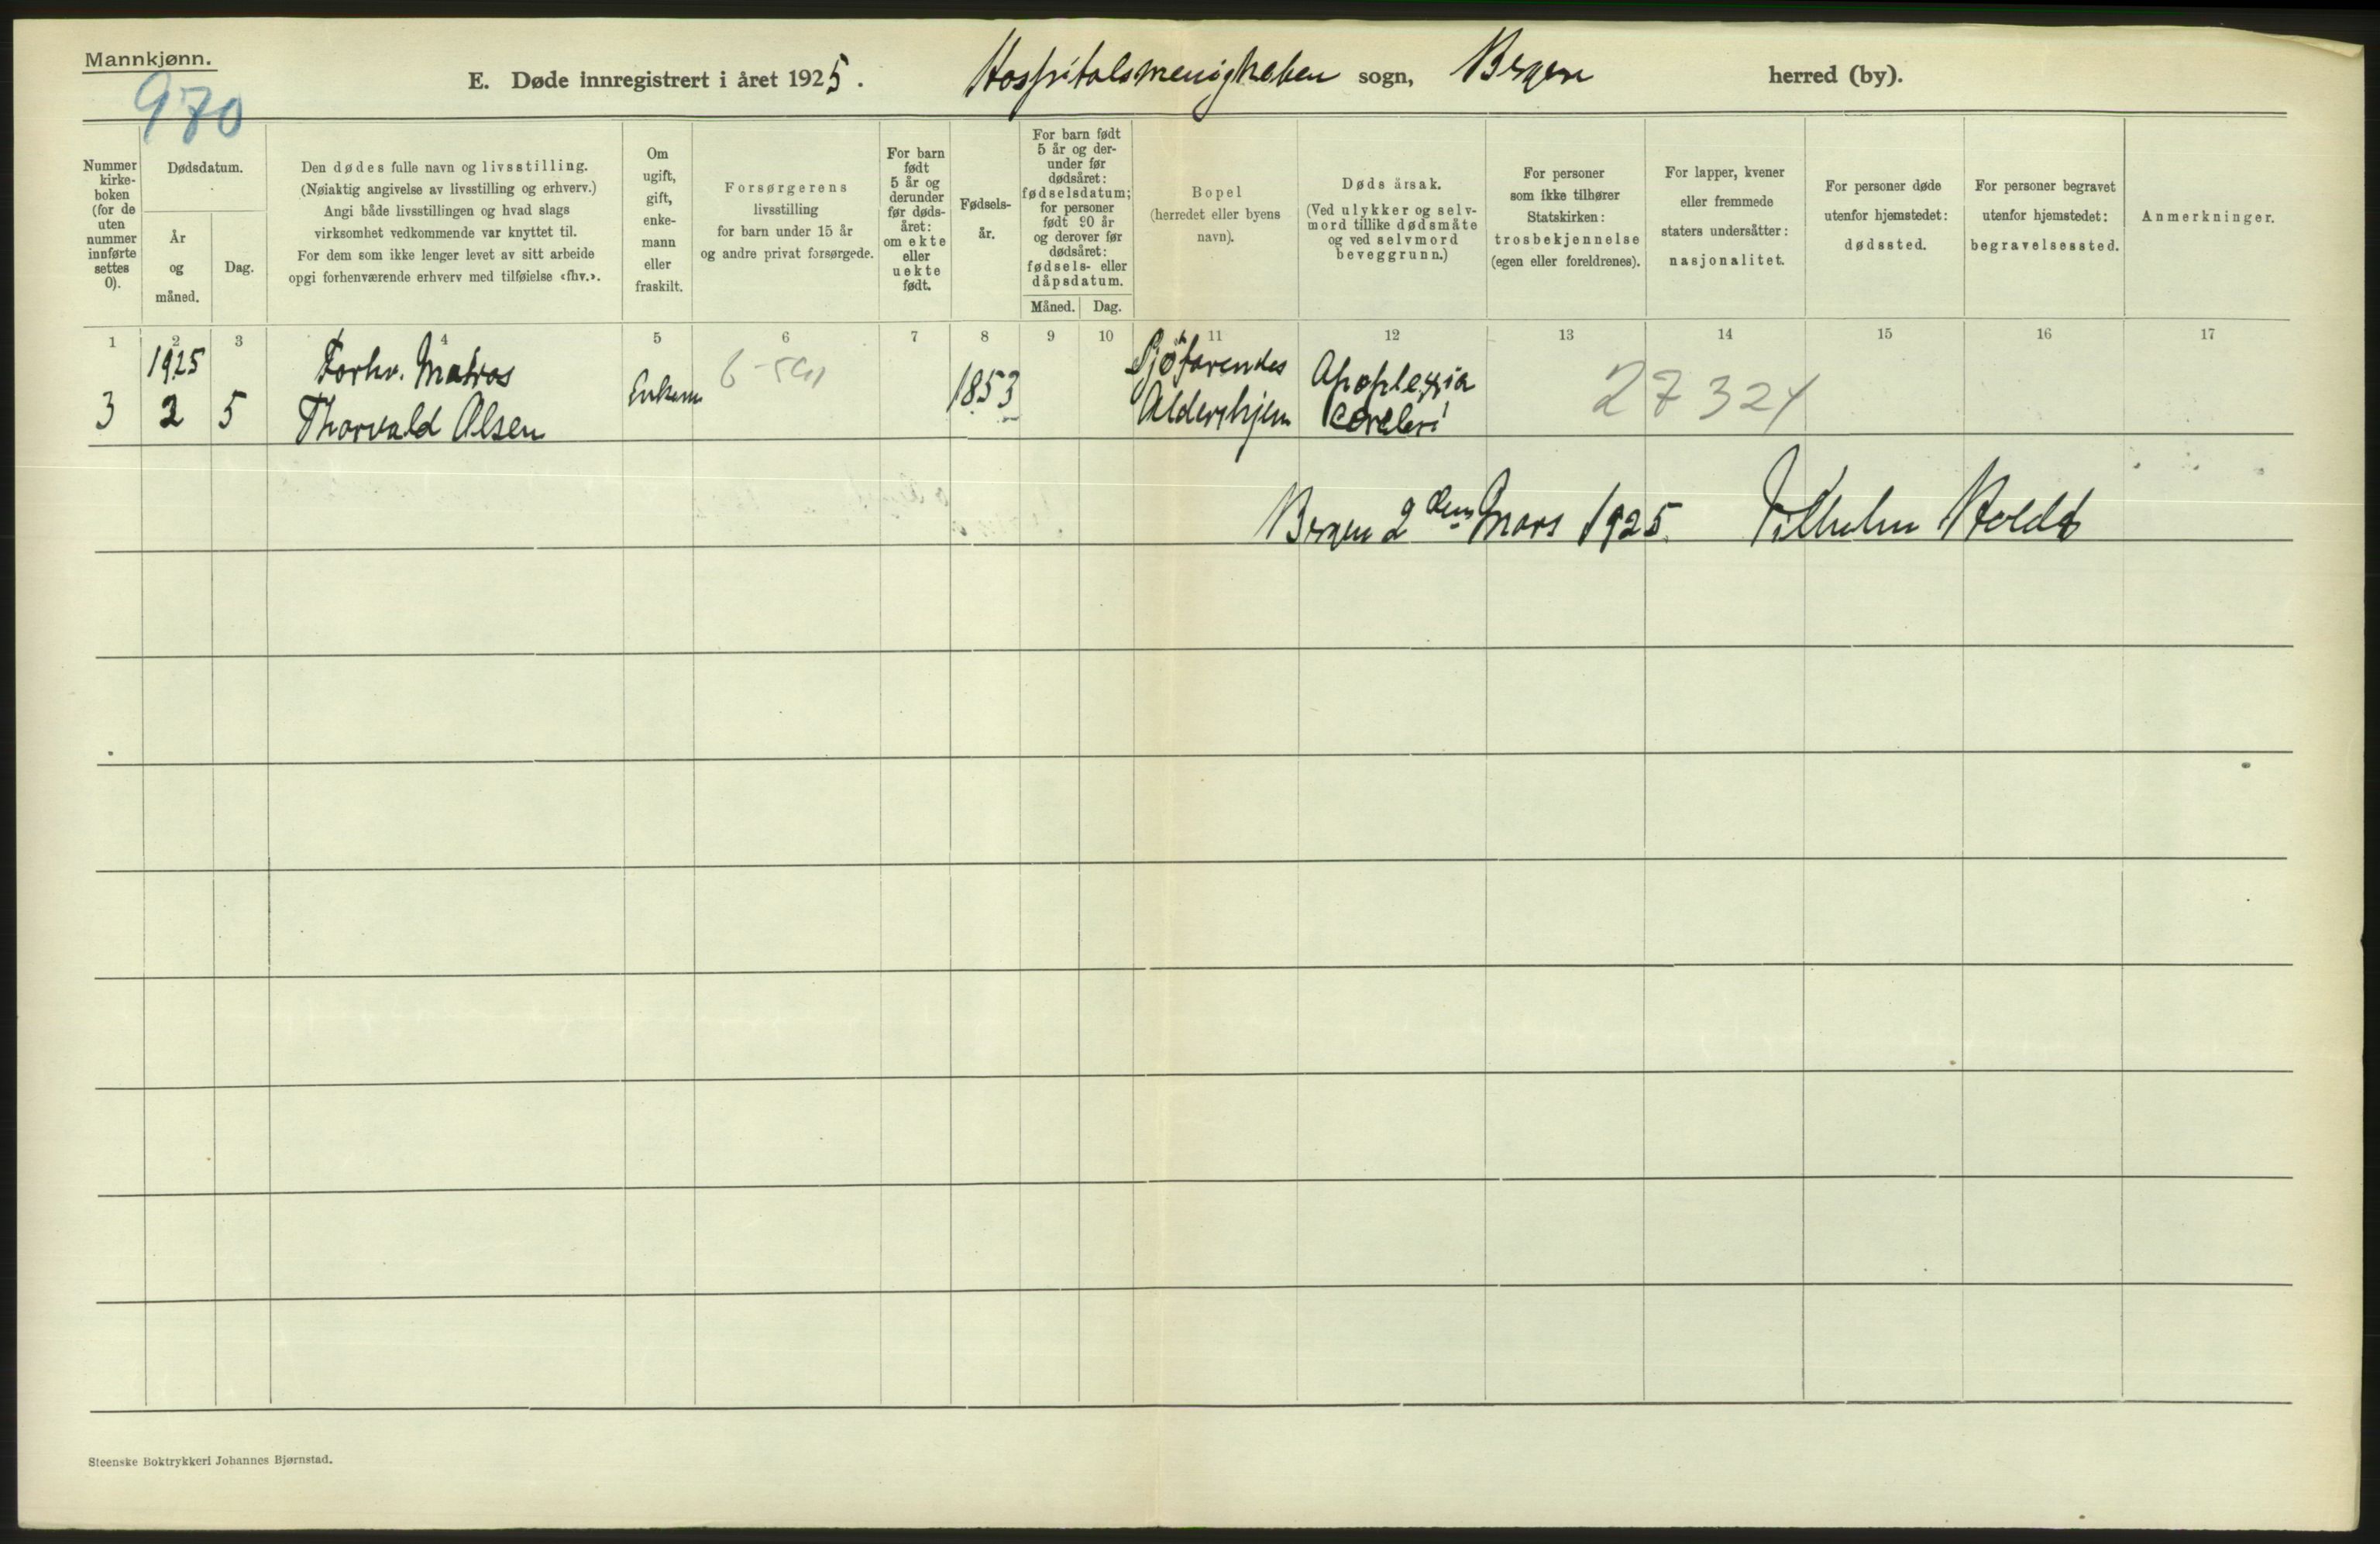 Mannkjønn.
970
E. Døde innregistrert i året 1925. Hospitalsmenigheten sogn, Bergen herred (by).
Nummer
kirke-
boken
(for de
uten
nummer
innførte
settes
0).
Dødsdatum.
År
og
måned.
Dag.
Den dødes fulle navn og livsstilling.
(Nøiaktig angivelse av livsstilling og erhverv.)
Angi både livsstillingen og hvad slags
virksomhet vedkommende var knyttet til.
For dem som ikke lenger levet av sitt arbeide
opgi forhenværende erhverv med tilføielse «fhv.».
Om
ugift,
gift,
enke-
mann
eller
fraskilt.
Forsørgerens
livsstilling
for barn under 15 år
og andre privat forsørgede.
For barn
født
5 år og
derunder
før døds-
året:
om ekte
eller
uekte
født.
Fødsels-
år.
For barn født
5 år og der-
under før
dødsåret:
fødselsdatum;
for personer
født 90 år
og derover før
dødsåret:
fødsels- eller
dåpsdatum.
Måned. Dag.
Bopel
(herredet eller byens
navn).
Dødsårsak.
(Ved ulykker og selv-
mord tillike dødsmåte
og ved selvmord
beveggrunn.)
For personer
som ikke tilhører
Statskirken:
trosbekjennelse
(egen eller foreldrenes).
For lapper, kvener
eller fremmede
staters undersåtter:
nasjonalitet.
For personer døde
utenfor hjemstedet:
dødssted.
For personer begravet
utenfor hjemstedet:
begravelsessted.
Anmerkninger.
1 2 3 4 5 6 7 8 9 10 11 12 13 14 15 16 17
1925 Forhv. Matros Sjøfarendes Apoplexia
3 2 5 Thorvald Olsen Enkem 1853 Aldershjem cerebri 27324
Bergen 2den Mars 1925. Vilhelm Holdt
Steenske Boktrykkeri Johannes Bjørnstad.